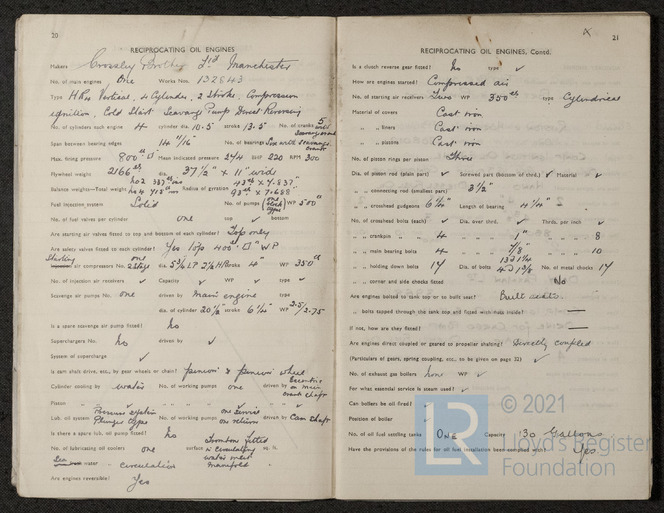 20
RECIPROCATING OIL ENGINES
Makers Crossley Brothers Ltd Manchester
No. of main engines One Works Nos. 132843
Type Vertical, 4 Cylinder, 2 Stroke, Compression
ignition, Cold Start Scavenge Pump Direct Reversing
No. of cylinders each engine 4 cylinder dia. 10.5 stroke 13.5 No. of cranks 5 incl scavenge crank
Span between bearing edges 14 11/16 No. of bearings Six incl scavenge crank
Max. firing pressure 800 Mean indicated pressure BHP 220 RPM 300
Flywheel weight 2166 dia. 37 1/2" x 11" wide
Balance weights—Total weight Radius of gyration
Fuel injection system Solid No. of pumps WP
No. of fuel valves per cylinder one top ✓ bottom
Are starting air valves fitted to top and bottom of each cylinder? Top only
Are safety valves fitted to each cylinder? Yes WP
Starting air compressors No. one 2 stage dia. stroke 4" WP 350
No. of injection air receivers ✓ Capacity ✓ WP ✓ type ✓
Scavenge air pumps No. one driven by main engine type
dia. of cylinder 20 1/2 stroke WP
Is a spare scavenge air pump fitted? No
Superchargers No. No driven by ✓
System of supercharge ✓
Is cam shaft drive, etc., by gear wheels or chain? wheel
Cylinder cooling by water No. of working pumps one driven by Eccentric on main crank shaft
Piston
Lub. oil system No. of working pumps driven by Cam Shaft
Is there a spare lub. oil pump fitted? No
No. of lubricating oil coolers one surface sq. ft.
Sea water circulation
Are engines reversible? Yes
21
RECIPROCATING OIL ENGINES, Contd.
Is a clutch reverse gear fitted? No type ✓
How are engines started? Compressed air
No. of starting air receivers Two WP 350 type Cylindrical
Material of covers Cast iron
„ „ liners Cast iron
„ „ pistons Cast iron
No. of piston rings per piston Three
Dia. of piston rod (plain part) ✓ Screwed part (bottom of thrd.) ✓ Material ✓
„ „ connecting rod (smallest part) 3 1/2"
„ „ crosshead gudgeons Length of bearing
No. of crosshead bolts (each) ✓ Dia. over thrd. ✓ Thrds. per inch ✓
„ „ crankpin „ 4 „ 1" „ 8
„ „ main bearing bolts 4 „ 7/8" „ 10
„ „ holding down bolts 14 Dia. of bolts No. of metal chocks 14
„ „ corner and side chocks fitted No
Are engines bolted to tank top or to built seat?
„ bolts tapped through the tank top and fitted with nuts inside? —
If not, how are they fitted? —
Are engines direct coupled or geared to propeller shafting? Directly coupled
(Particulars of gears, spring coupling, etc., to be given on page 22) ✓
No. of exhaust gas boilers None WP ✓
For what essential service is steam used? ✓
Can boilers be oil fired? ✓
Position of boiler ✓
No. of oil fuel settling tanks One Capacity 130 Gallons
Have the provisions of the rules for oil fuel installation been complied with? Yes
© 2021
LR
Lloyd's Register
Foundation